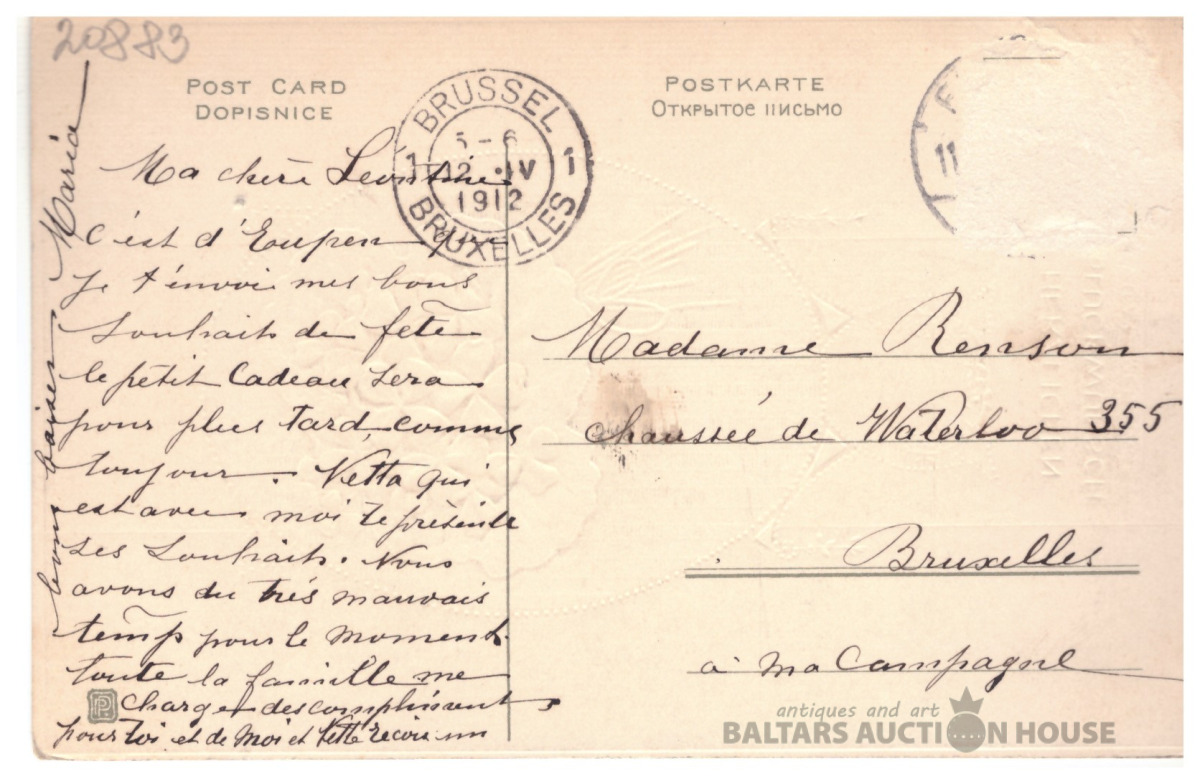 20883
POST CARD
DOPISNICE
POSTKARTE
ОТКРЫТОЕ ПИСЬМО
BRUSSEL
5-6
1 12 .IV 1
1912
BRUXELLES
11
Ma chère Léontine
C'est d'Eupen que
je t'envoi mes bons
souhaits de fête
le petit Cadeau sera
pour plus tard, comme
toujour. Netta qui
est avec moi te présente
ses souhaits. Nous
avons du trés mauvais
temp pour le moment
toute la famille me
charge des compliment
pour toi et de moi et Nette recois un
bons baiser Maria
Madame Renson
chaussée de Waterloo 355
Bruxelles
à ma Campagne
antiques and art
BALTARS AUCTION HOUSE